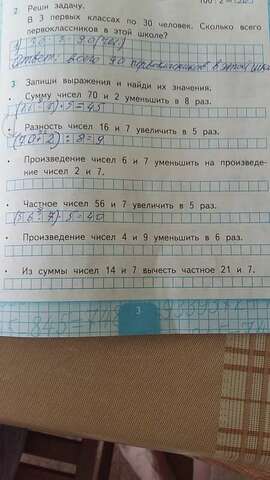 2. Реши задачу.
В 3 первых классах по 30 человек. Сколько всего
первоклассников в этой школе?
Ответ: всего 90 первоклассников в этой
3. Запиши выражения и найди их значения.
• Сумму чисел 70 и 2 уменьшить в 8 раз.
=45
• Разность чисел 16 и 7 увеличить в 5 раз.
(70+2):8=9
• Произведение чисел 6 и 7 уменьшить на произведе-
ние чисел 2 и 7.
• Частное чисел 56 и 7 увеличить в 5 раз.
(56:7)·5=40
• Произведение чисел 4 и 9 уменьшить в 6 раз.
• Из суммы чисел 14 и 7 вычесть частное 21 и 7.
3